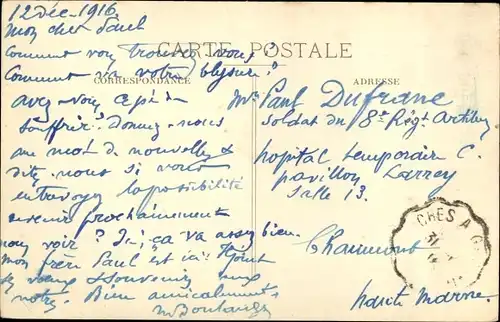 12 Déc. 1916
Mon cher Paul
Comment vous trouvez vous?
CARTE POSTALE
Comment va votre blessure?
CORRESPONDANCE
ADRESSE
avez-vous cessé de
souffrir? Donnez-nous
un mot de nouvelles &
dites-nous si vous
entrevoyez la possibilité
revenir prochainement
nous voir? Ici ça va assez bien.
mon frère Paul est ici & joint
ses vœux & souvenirs aux
notres. Bien amicalement
Mr Paul Dufrane
soldat du 8e Régt Artillerie
hopital temporaire C.
pavillon Larrey
Salle 13.
Chaumont
Haute Marne
CHES A G